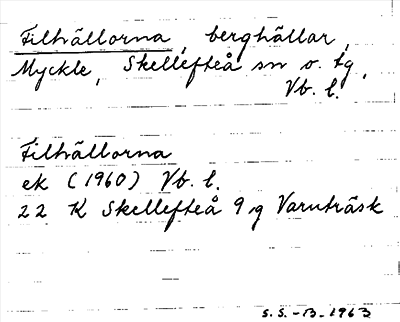 Filhällorna, berghällar,
Myckle, Skellefteå sn o. tg,
Vb. l.
Filhällorna
ek (1960) Vb. l.
22 K Skellefteå 9 g Varuträsk
S.S.-B. 1963